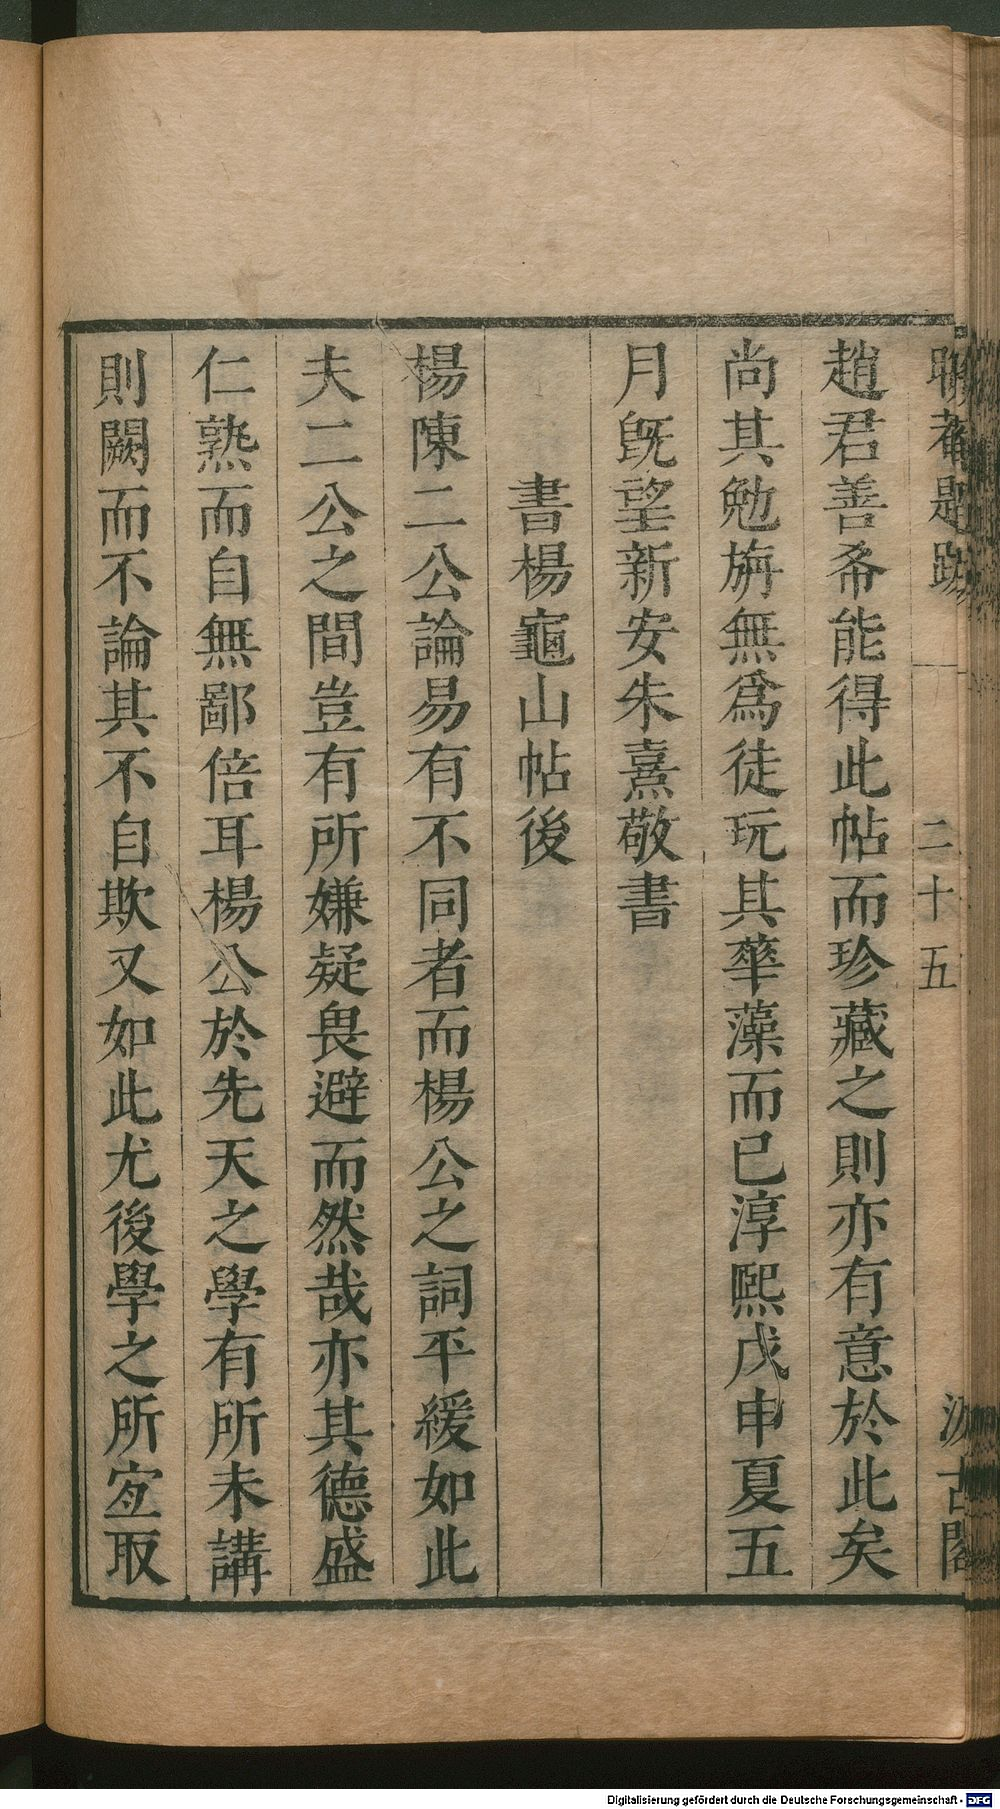 晦菴題跋　二十五　汲古閣
趙君善希能得此帖而珍藏之則亦有意於此矣
尚其勉旃無爲徒玩其華藻而已淳熙戊申夏五
月旣望新安朱熹敬書
書楊龜山帖後
楊陳二公論易有不同者而楊公之詞平緩如此
夫二公之間豈有所嫌疑畏避而然哉亦其德盛
仁熟而自無鄙倍耳楊公於先天之學有所未講
則闕而不論其不自欺又如此尤後學之所宐取
Digitalisierung gefördert durch die Deutsche Forschungsgemeinschaft - DFG